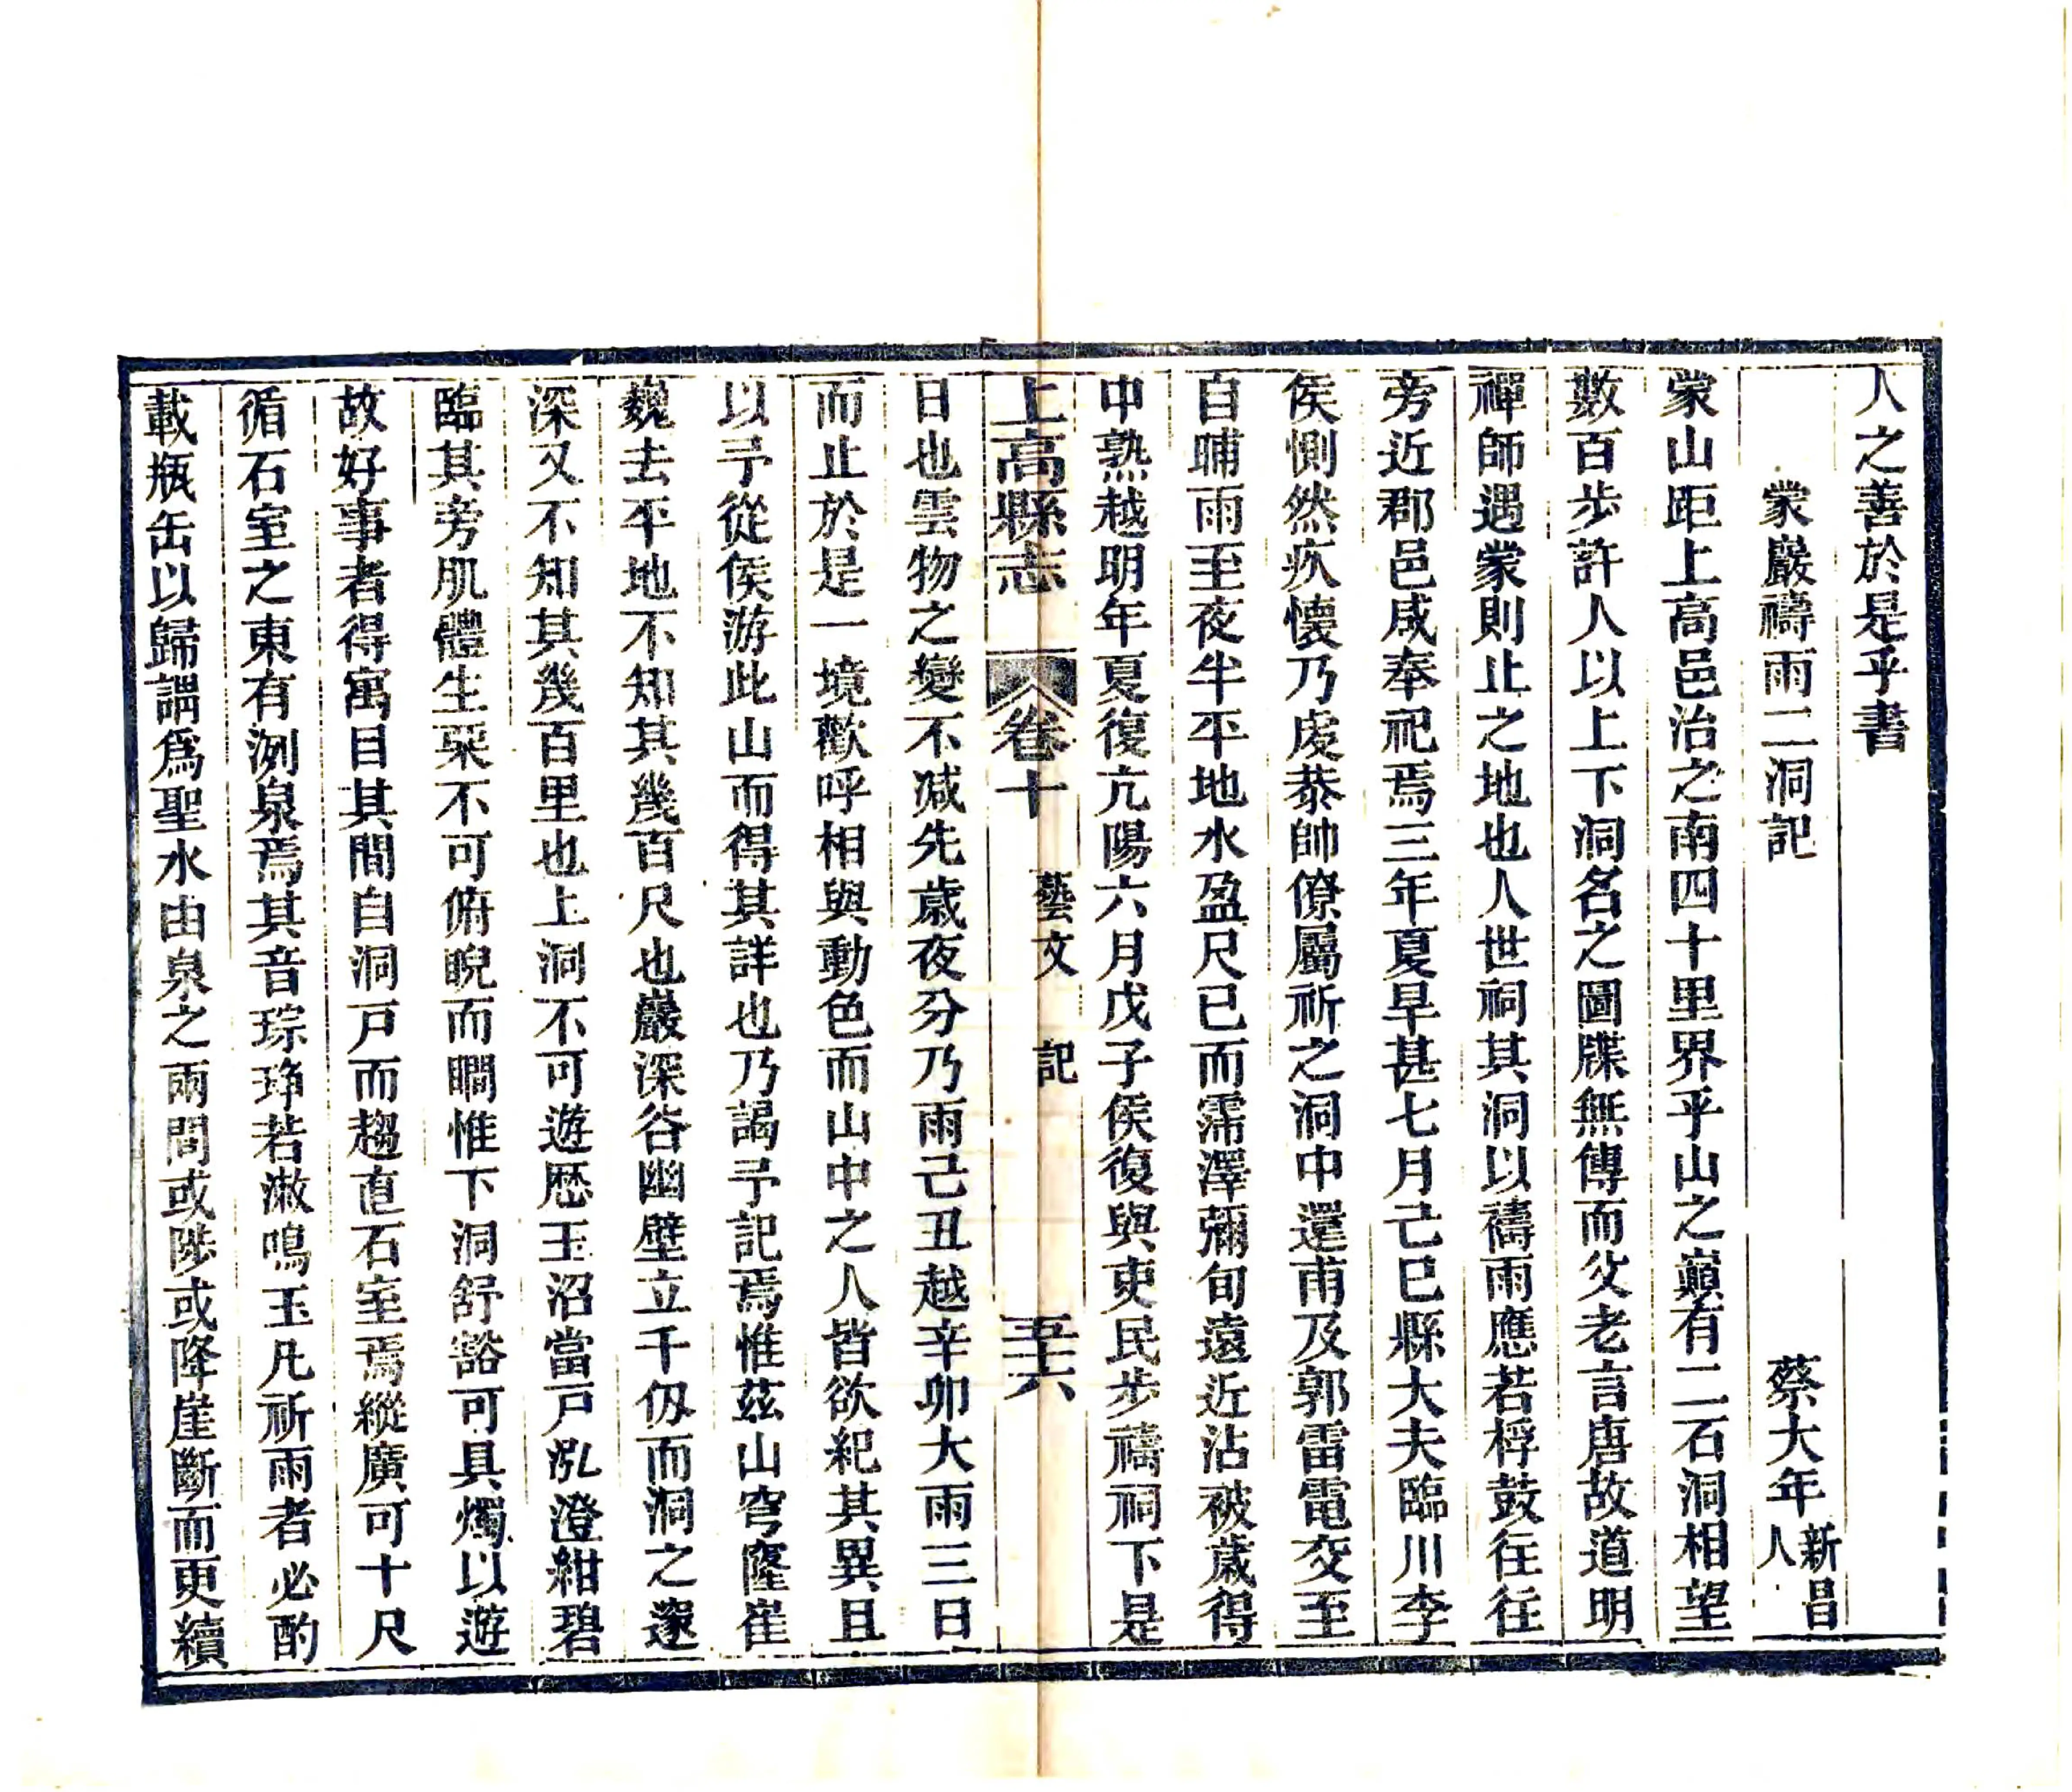 人之善於是乎書
蒙巖禱雨二洞記　蔡大年新昌人
蒙山距上高邑治之南四十里界乎山之巔有二石洞相望
數百步許人以上下洞名之圖牒無傳而父老言唐故道明
禪師遇蒙則止之地也人世祠其洞以禱雨應若桴鼓往往
旁近郡邑咸奉祀焉三年夏旱甚七月己巳縣大夫臨川李
侯惻然疚懷乃虔恭帥僚屬祈之洞中還甫及郭雷電交至
自晡雨至夜半平地水盈尺已而霈澤彌旬遠近沾被歲得
中熟越明年夏復亢陽六月戊子侯復與吏民步禱祠下是
上高縣志　卷十　藝文　記　五十六
日也雲物之變不減先歲夜分乃雨己丑越辛卯大雨三日
而止於是一境歡呼相與動色而山中之人皆欲紀其異且
以予從侯游此山而得其詳也乃謁予記焉惟茲山穹窿崔
巍去平地不知其幾百尺也巖深谷幽壁立千仞而洞之邃
深又不知其幾百里也上洞不可遊歷玉沼當戸泓澄紺碧
臨其旁肌體生栗不可俯睨而瞷惟下洞舒谽可具燭以遊
故好事者得寓目其間自洞戸而趨直石室焉縱廣可十尺
循石室之東有洌泉焉其音琮琤若漱鳴玉凡祈雨者必酌
載瓶缶以歸謂為聖水由泉之兩間或陟或降崖斷而更續